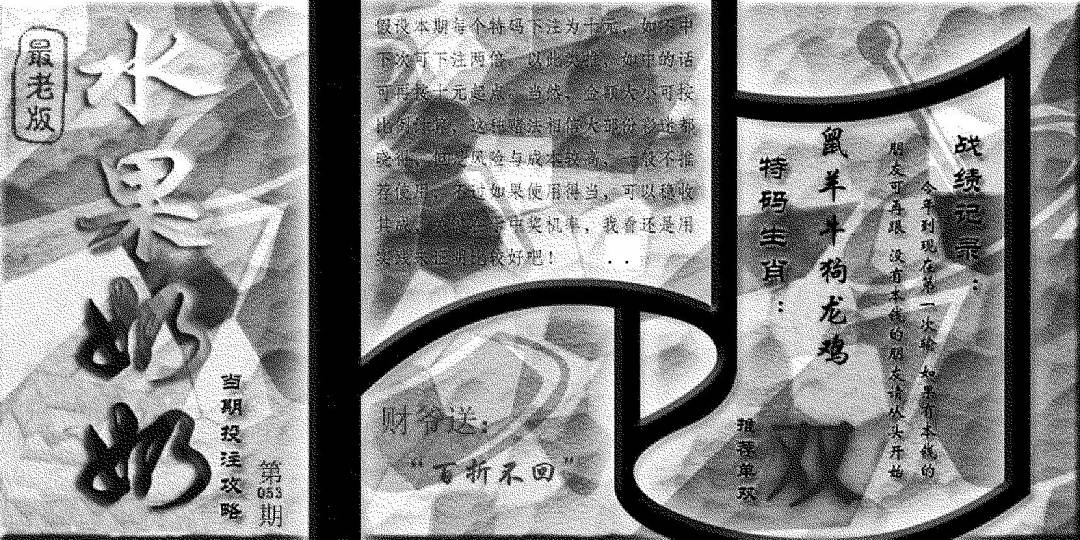 最老版
水果奶奶
当期投注攻略
第053期
假设本期每个特码下注为十元，如不中
下次可下注两倍，以此类推，如中的话
可再按十元起点，当然，金额大小可按
比例
这种赌法相信大部份彩迷都
风险与成本较高，一般不推
荐使用，不过如果使用得当，可以稳收
中奖机率，我看还是用
比较好吧！
财爷送：
“百折不回”
战绩记录：
今年到现在第一次输 如果有本钱的
朋友可再跟 没有本钱的朋友请从头开始
鼠羊牛狗龙鸡
特码生肖：
推荐单双
双